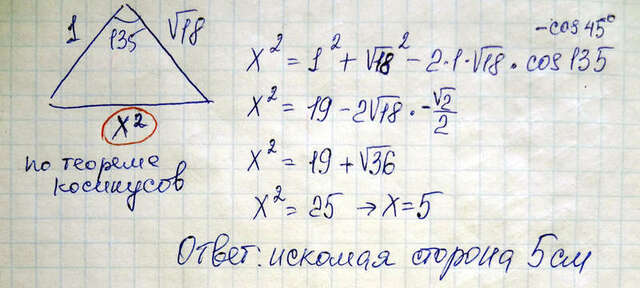 1 135 √18
x²
по теореме
косинусов
-cos 45°
x² = 1² + √18² - 2·1·√18 · cos 135
x² = 19 - 2√18 · -√2/2
x² = 19 + √36
x² = 25 → x = 5
Ответ: искомая сторона 5 см